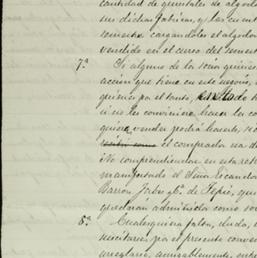 cantidad de quintales de algodo
sus dichas fabricas, y las cuent
semestre cargandoles el algodon
vendido en el curso del semest
7.ª Si alguno de los socios quisiese
accion que tiene en este negocio,
quiénes por el tanto,
si no les conviniere hacer la co
quiera vender podrá hacerlo,
el comprador sea
No comprendiendose en esta
manifestado el Señor Escandon
Barron Forbes y C.ª de Tepic, que
quedarán admitidos como so
8.ª Cualesquiera falta, duda,
suscitare, por el presente conve
arreglarse, amigablemente,